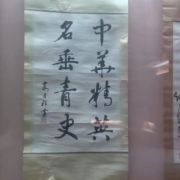 中華精英
名垂青史